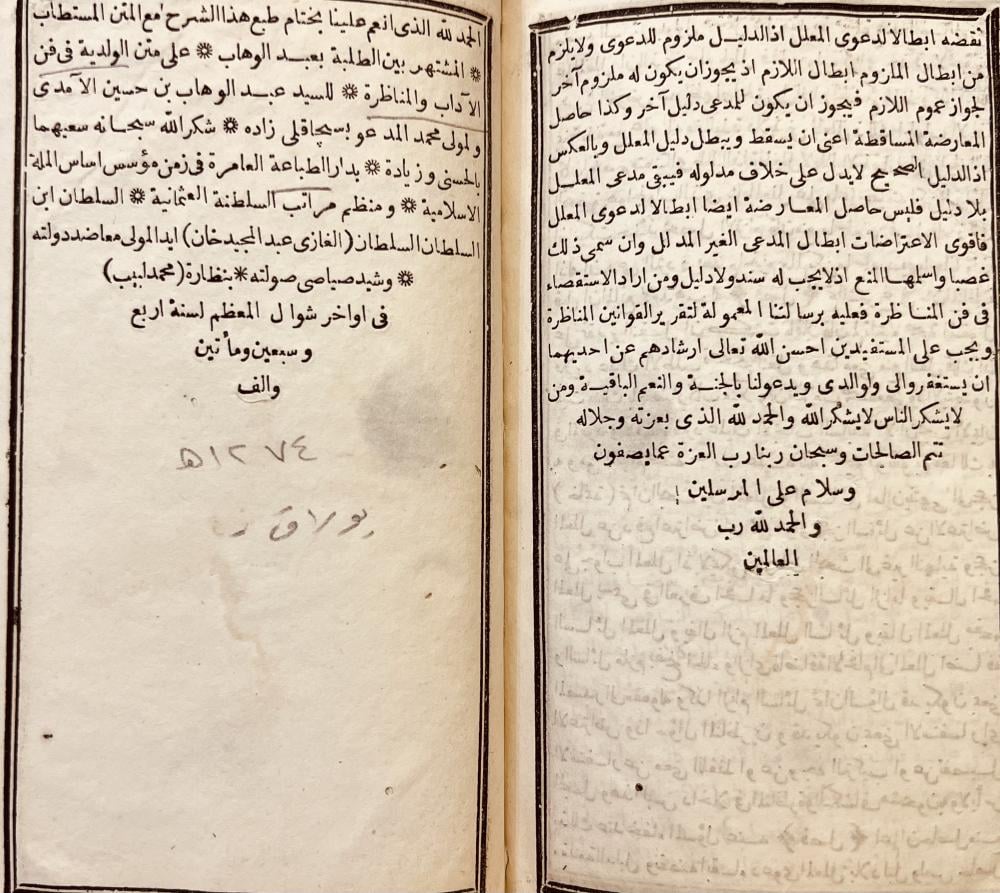 نقضه ابطالا لدعوى المعلل اذ الدليل ملزوم للدعوى ولا يلزم
من ابطال الملزوم ابطال اللازم اذ يجوز ان يكون له ملزوم آخر
لجواز عموم اللازم فيجوز ان يكون للمدعى دليل آخر وكذا حاصل
المعارضة المساقطة اعنى ان يسقط ويبطل دليل المعلل وبالعكس
اذ الدليل الصحيح لا يدل على خلاف مدلوله فيبقى مدعى المعلل
بلا دليل فليس حاصل المعارضة ايضا ابطالا لدعوى المعلل
فاقوى الاعتراضات ابطال المدعى الغير المدلل وان سمى ذلك
غصبا واسلمها المنع اذ لا يجب له سند ولا دليل ومن اراد الاستقصاء
فى فن المناظرة فعليه برسالتنا المعمولة لتقرير القوانين المناظرة
ويجب على المستفيدين احسن الله تعالى ارشادهم عن احديهما
ان يستغفروا لى ولوالدى ويدعو لنا بالجنة والنعم الباقية ومن
لا يشكر الناس لا يشكر الله والحمد لله الذى بعزته وجلاله
تتم الصالحات وسبحان ربنا رب العزة عما يصفون
وسلام على المرسلين
والحمد لله رب
العالمين
الحمد لله الذى انعم علينا بختام طبع هذا الشرح مع المتن المستطاب
* المشتهر بين الطلبة بعبد الوهاب * على متن الولدية فى فن
الآداب والمناظرة * للسيد عبد الوهاب بن حسين الآمدى
ولمولى محمد المدعو بسچاقلى زاده * شكر الله سبحانه سعيهما
بالحسنى وزيادة * بدار الطباعة العامرة فى زمن مؤسس اساس الملة
الاسلامية * ومنظم مراتب السلطنة العثمانية * السلطان ابن
السلطان السلطان (الغازى عبد المجيد خان) ايد المولى معاضد دولته
* وشيد صياصى صولته * بنظارة (محمد لبيب)
فى اواخر شوال المعظم لسنة اربع
وسبعين ومأتين
والف
١٢٧٤ ه
بولاق